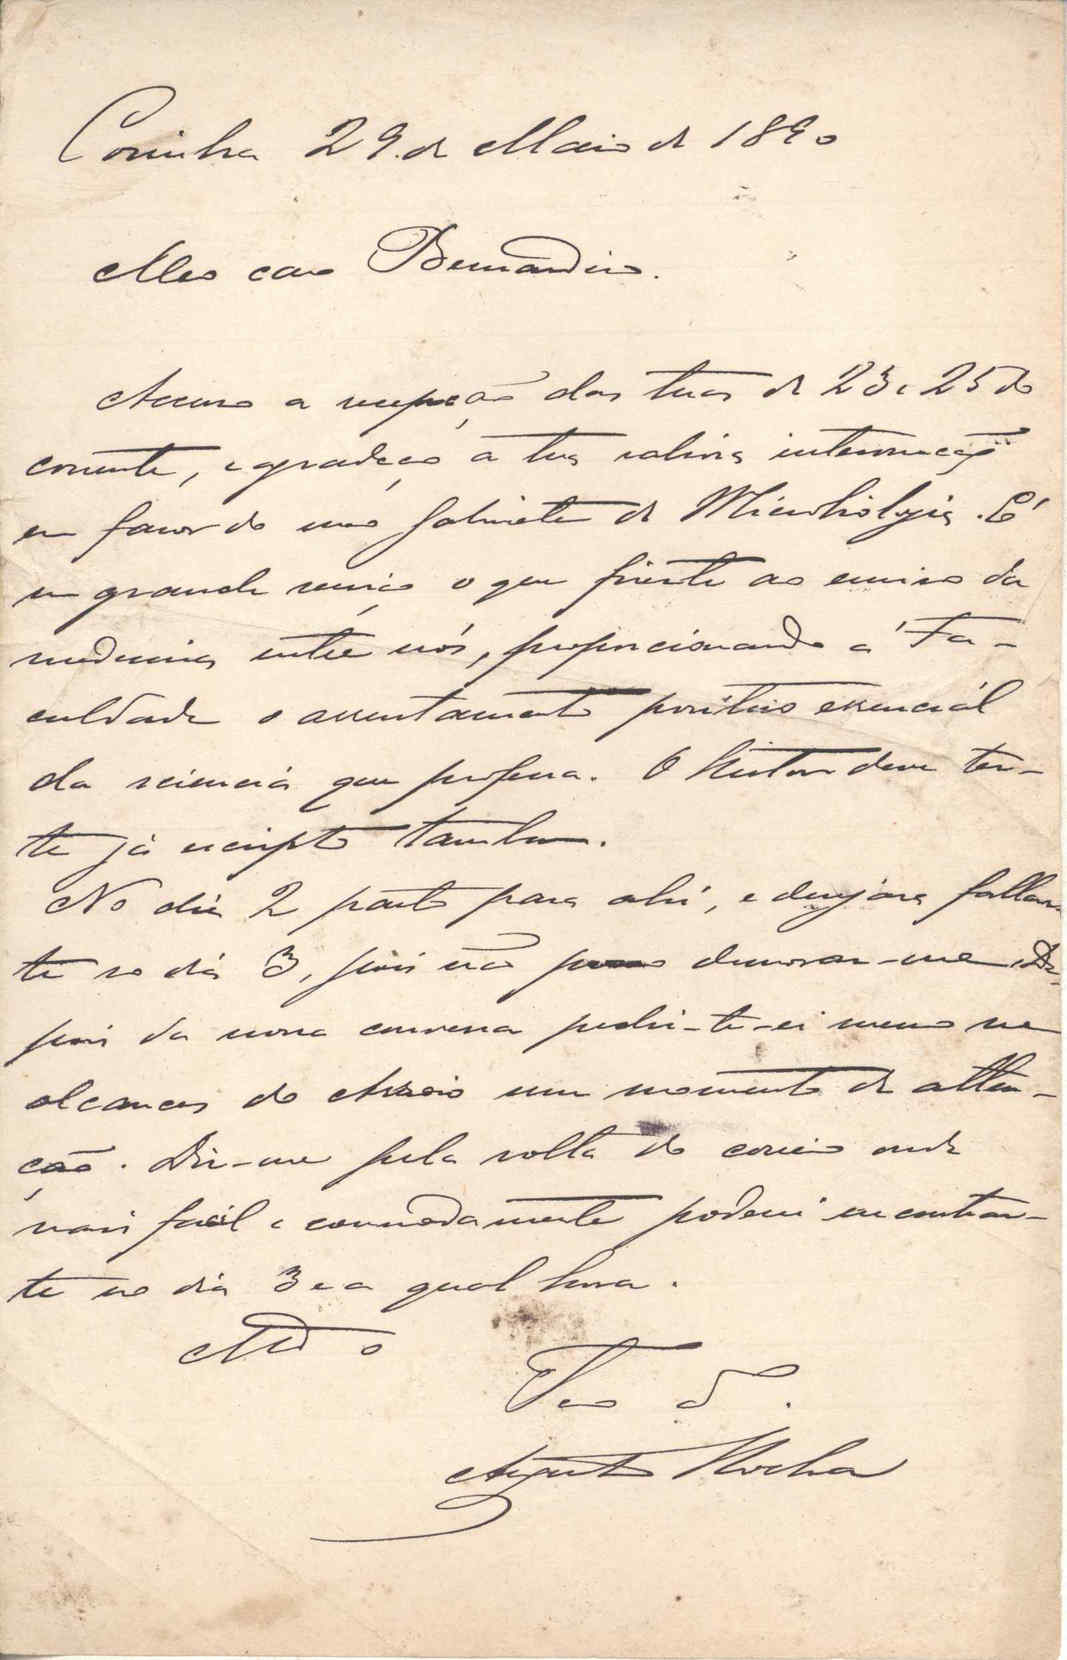 Coimbra 29 de Maio de 1890
Meo caro Bernardino.
Accuso a recepção das tuas de 23 e 25 do
corrente, e agradeço a tua valiosa intervenção
em favor do meo Gabinete de Microbiologia. É
um grande serviço o que fizeste ao ensino da
medicina entre nós, proporcionando á Fa-
culdade o assentamento positivo essencial
da sciencia que professa. O deve ter-
te já escripto tambem.
No dia 2 parto para ahi, e desejava fallar-
te no dia 3, pois não posso demorar-me. De-
pois da nossa conversa pedir-te-ei
alcances do um momento de atten-
ção. Diz-me pela volta do correio onde
mais facil e commodamente poderei encontrar-
te no dia 3 e a qual hora.
Teo
Augusto Rocha